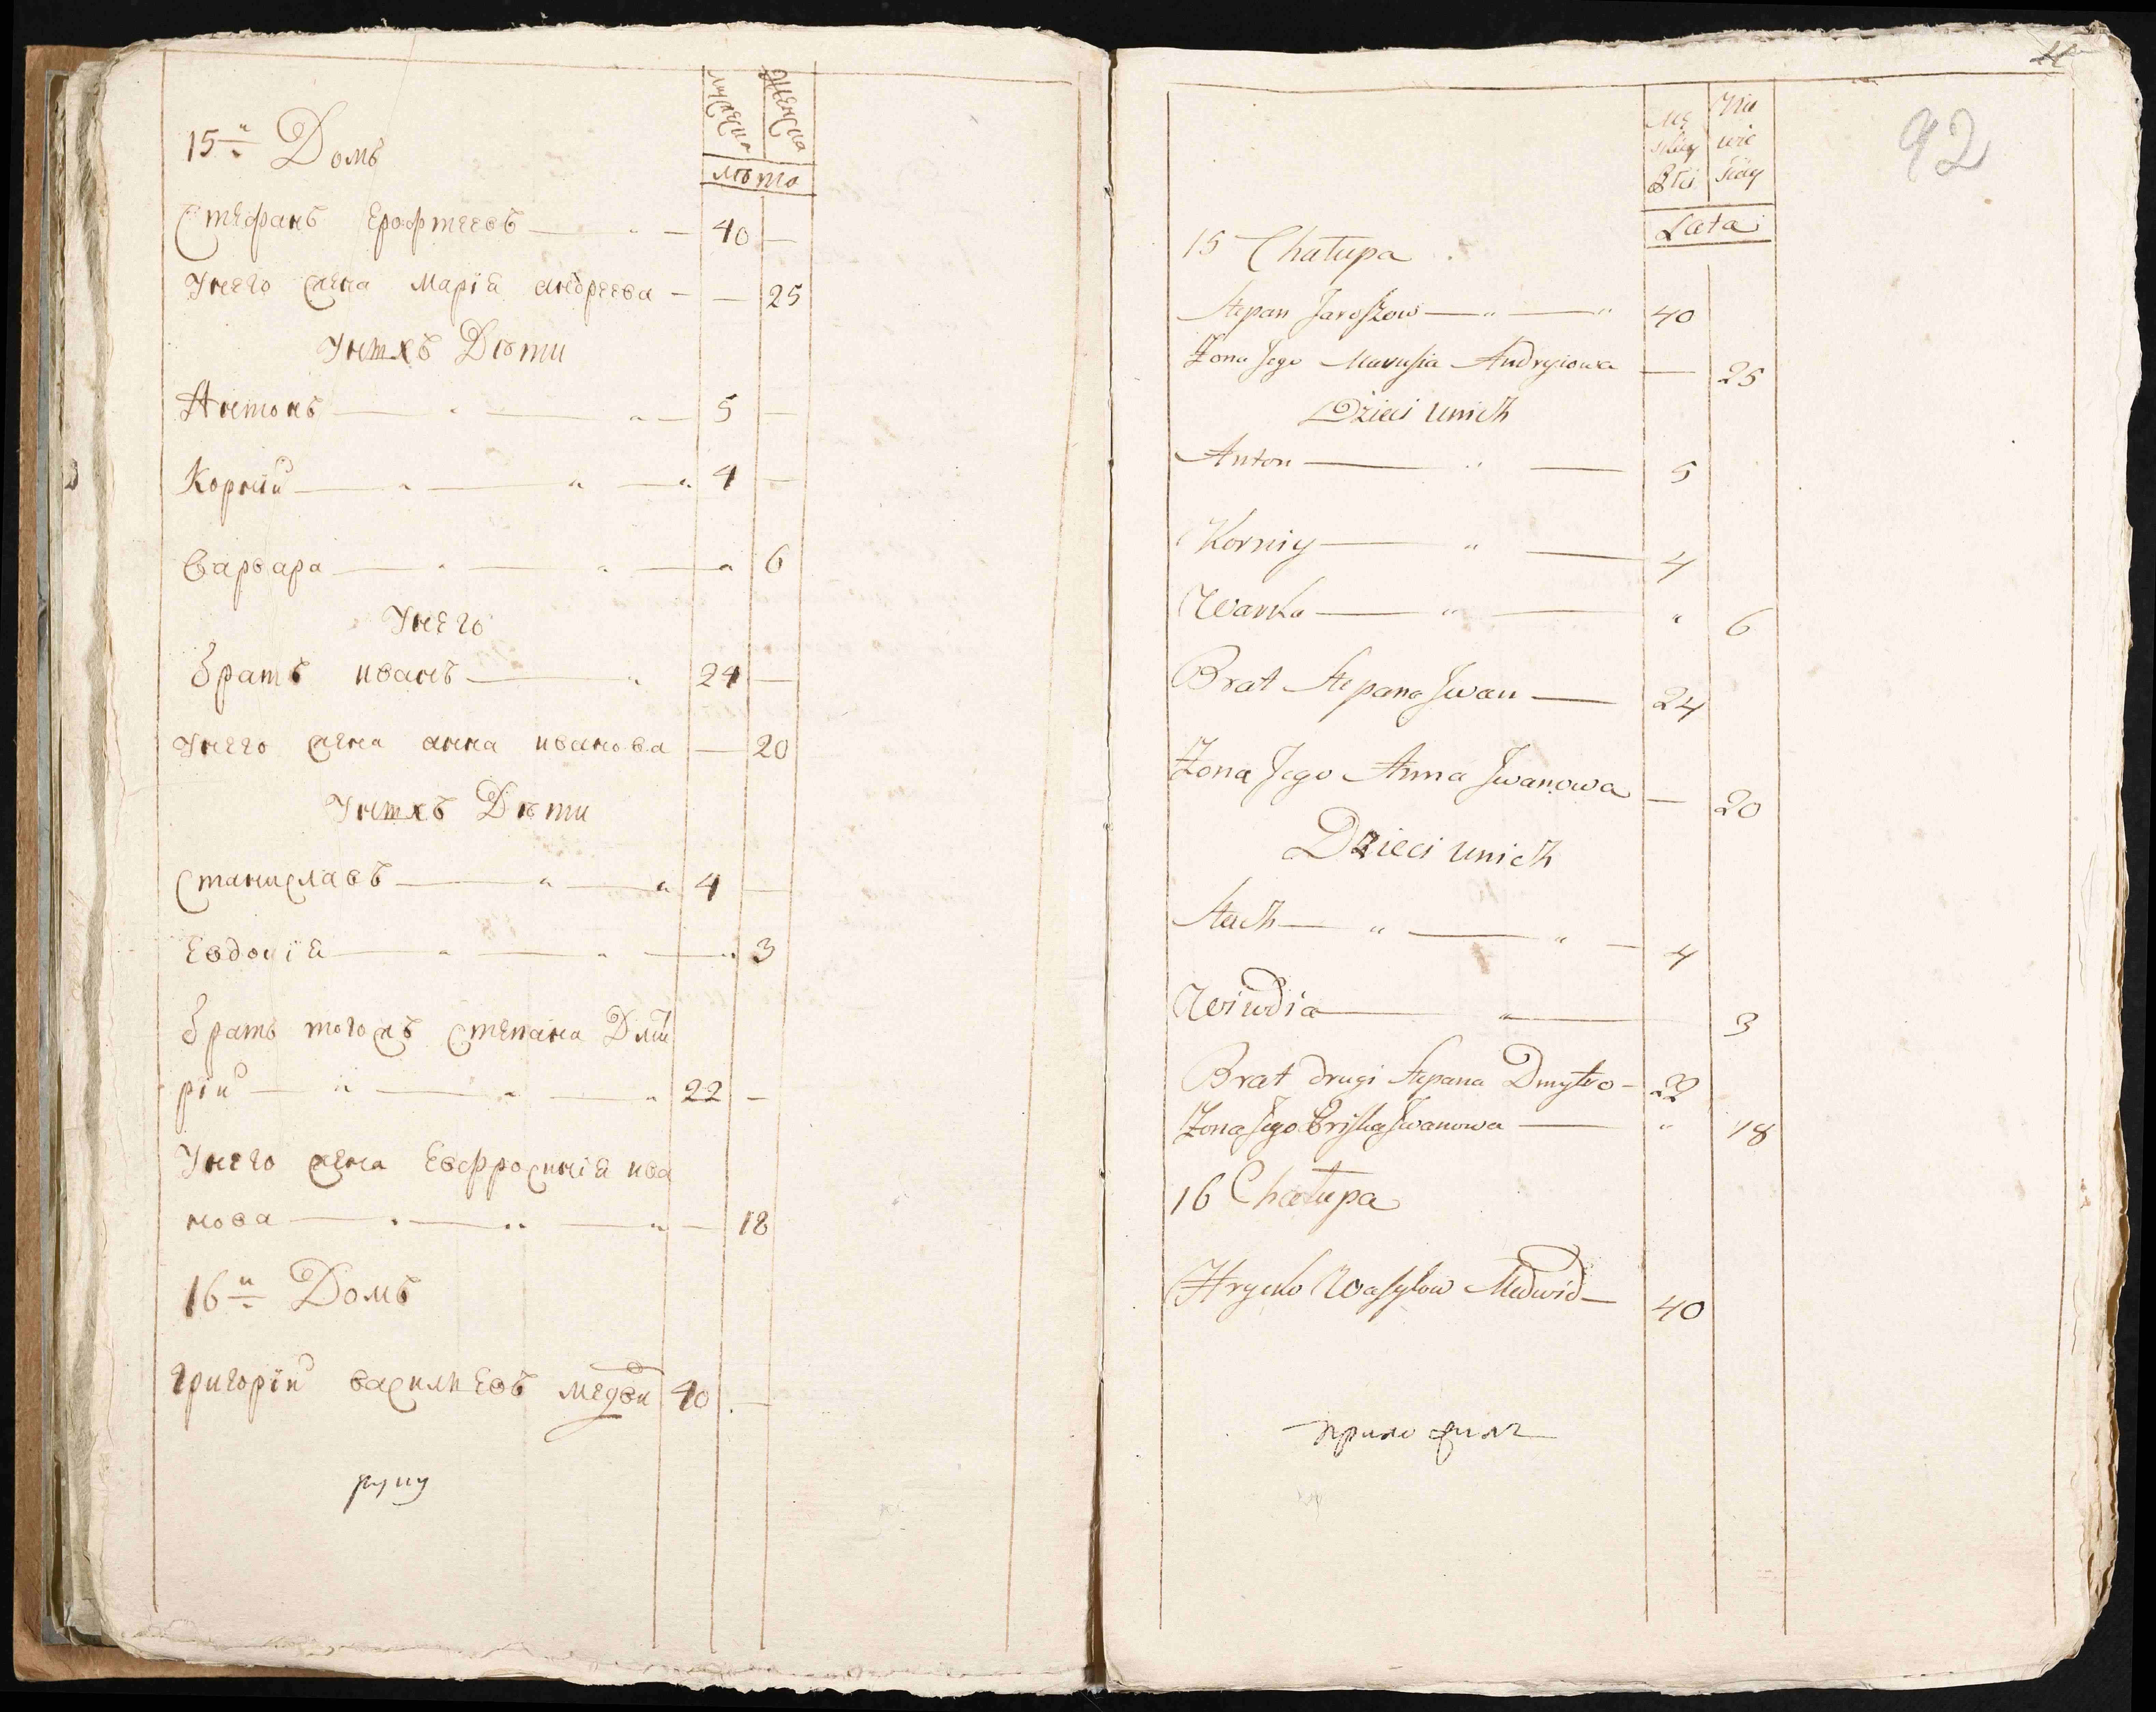 мужеска женска
лѣта
15й Домъ
Стефанъ Ерофтеевъ 40 —
Унего жена Марія андреева — 25
Унихъ Дѣти
Антонъ 5 —
Корнїй 4 —
Варвара " 6
Унего
братъ иванъ 24 —
Унего жена анна иванова — 20
Унихъ Дѣти
Станиславъ 4 —
Евдокія " 3
братъ тогожъ Степана Дмит
рій 22 —
Унего жена Евфросинія ива
нова — 18
16й Домъ
григорїй васильевъ медви 40 —
руку
92
Mę skiey Płci Nie wie ściey
Lata
15 Chałupa
Stepan Jaroszow 40
Żona Jego Marusia Andryiowa — 25
Dzieci unich
Anton 5
Korniy 4
Warka " 6
Brat Stepana Jwan 24
Żona Jego Anna Jwanowa — 20
Dzieci unich
Stach 4
Wiwdia 3
Brat drugi Stepana Dmytro 22
Żona Jego Priska Jwanowa " 18
16 Chałupa
Hryćko Wasylow Medwid 40
приложилъ